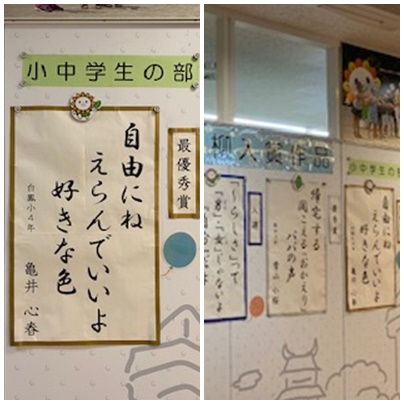 小中学生の部
最優秀賞
自由にね
えらんでいいよ
好きな色
白鳳小4年
亀井 心春
柳入賞作品
小中学生の
自由にね
えらんでいいよ
好きな色
入選
帰宅する
聞こえる「おかえり」
パパの声
「らしさ」って